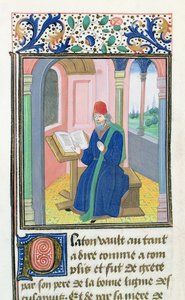 Platon vault autant
a dire comme acom
plit et fut de grece
par son pere de la bonne ligne des
culanus. Et de par mere de